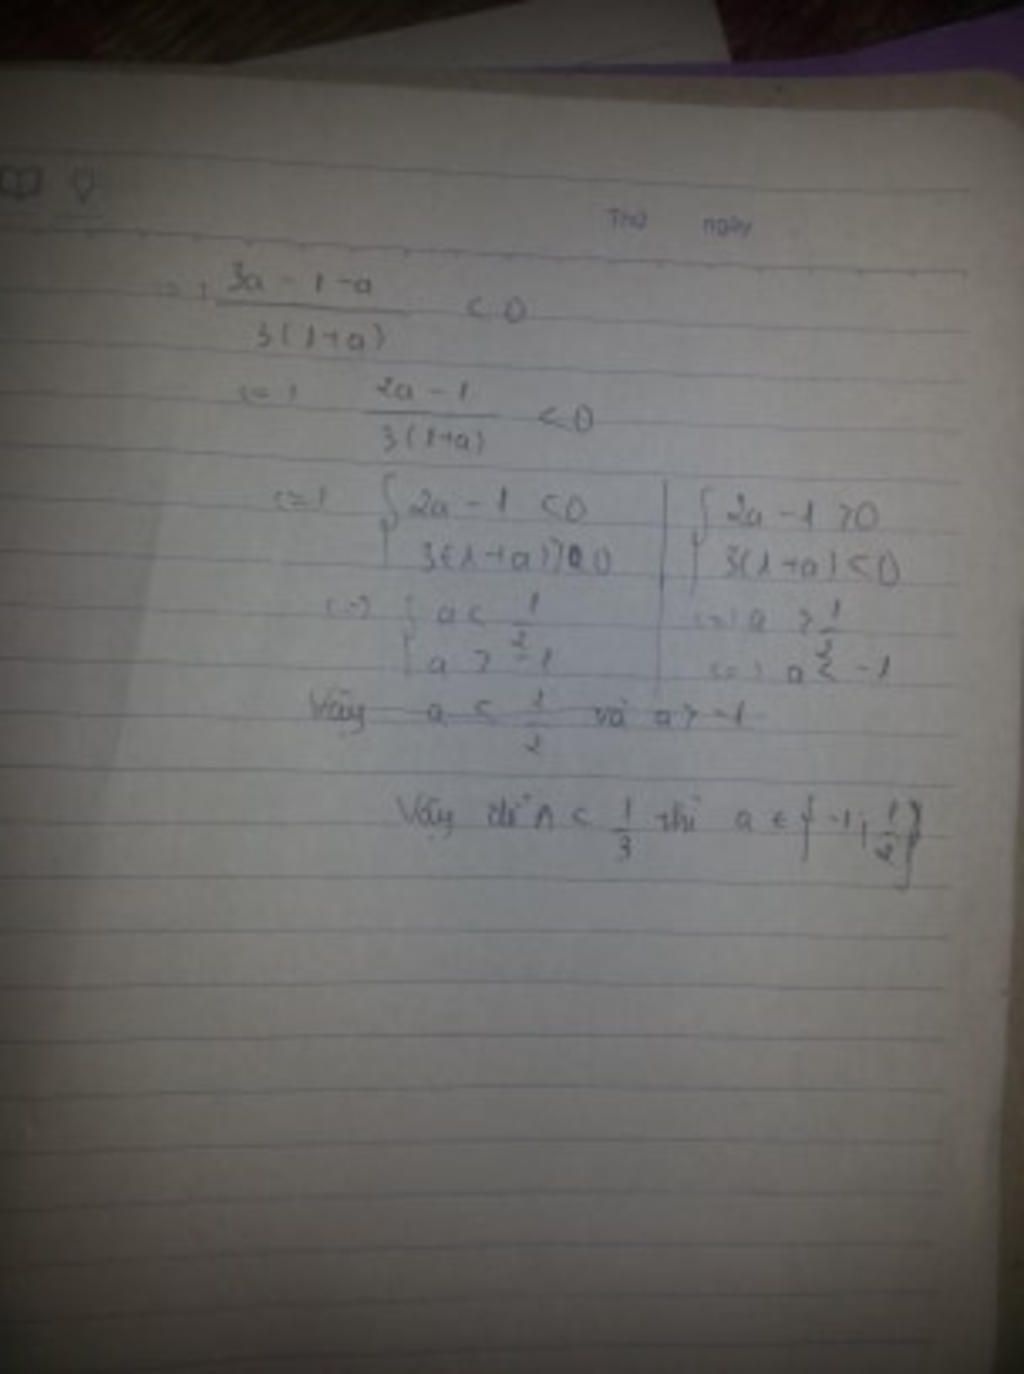 Thứ ngày
<=> 3a - 1 - a / 3(1+a) < 0
<=> 2a - 1 / 3(1+a) < 0
<=> { 2a - 1 < 0 | { 2a - 1 > 0
3(1+a) > 0 | 3(1+a) < 0
<=> { a < 1/2 | <=> a > 1/2
a > -1 | <=> a < -1
Vậy a < 1/2 và a > -1
Vậy để A < 1/3 thì a ∈ { -1; 1/2 }